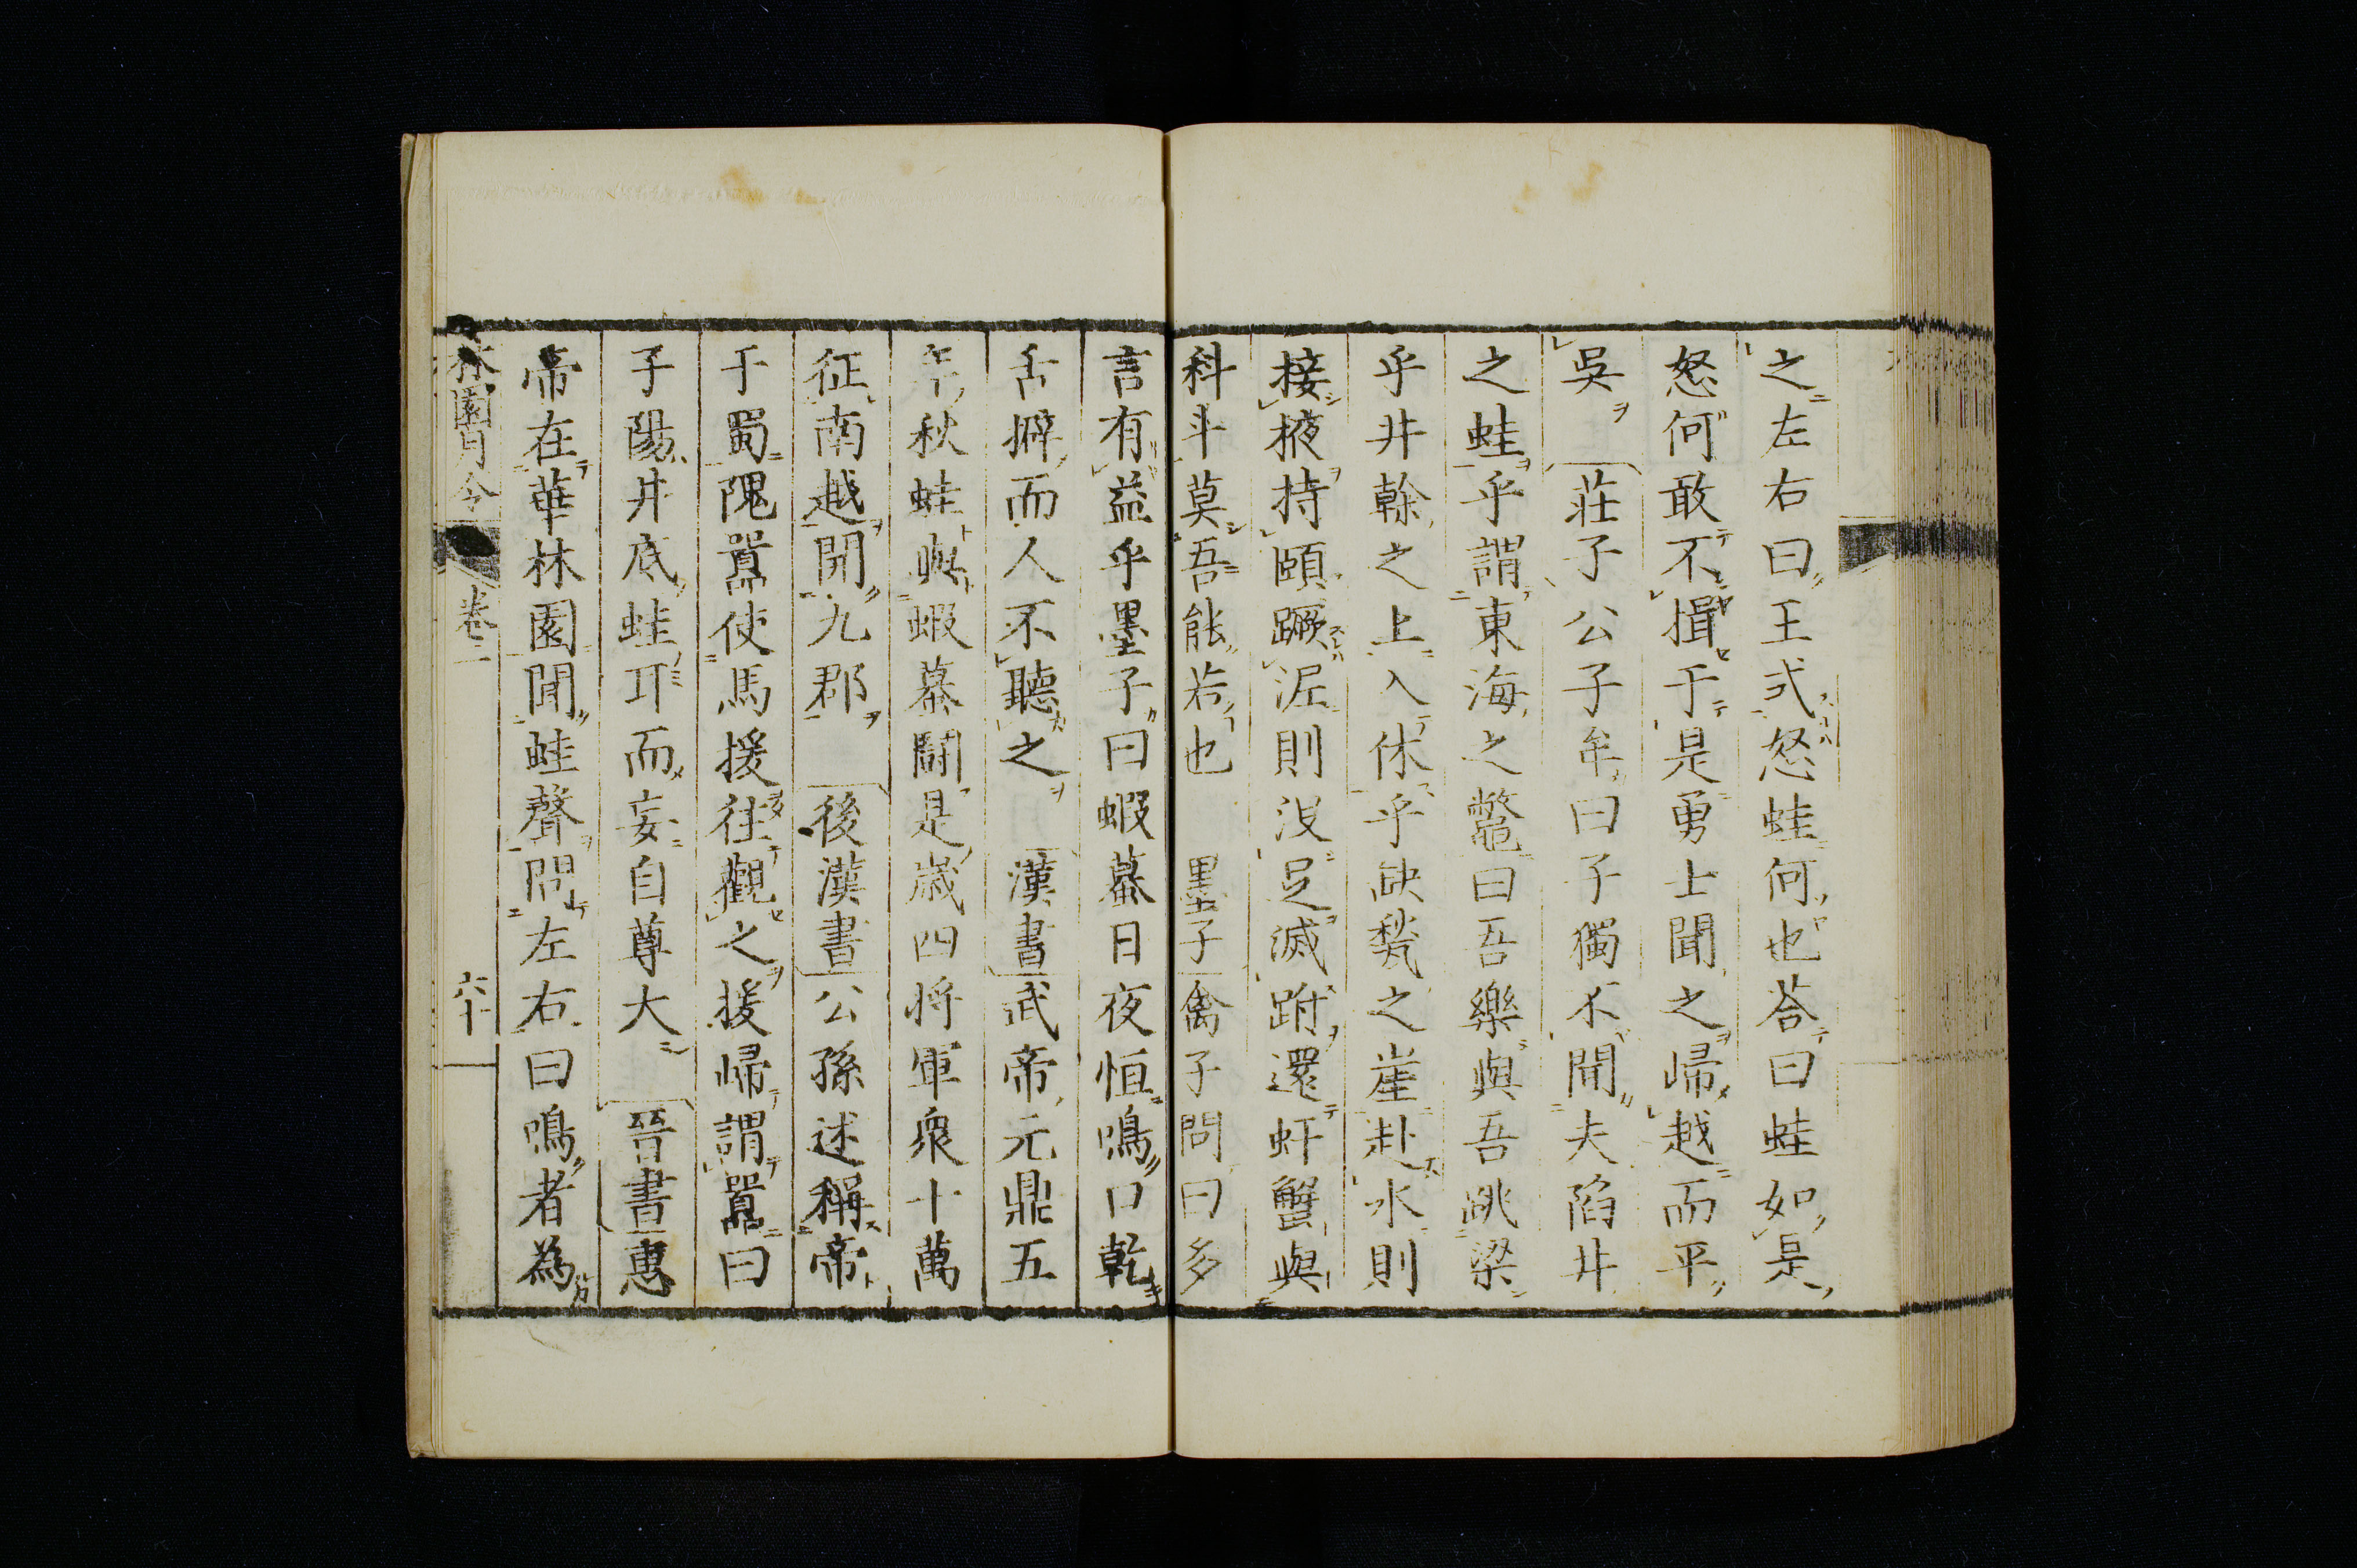 之左右曰王式怒蛙何也荅曰蛙如是
怒何敢不揖于是勇士聞之帰越而平
吳 莊子公子牟曰子獨不聞夫陷井
之蛙乎謂東海之鼈曰吾樂與吾跳梁
乎井榦之上入休乎缺甃之崖赴水則
接掖持頤蹶泥則没足滅跗還虷蟹與
科斗莫吾能若也 墨子禽子問曰多
言有益乎墨子曰蝦蟇日夜恒鳴口乾
舌擗而人不聽之 漢書武帝元鼎五
年秋蛙與蝦蟇鬪是歲四将軍衆十萬
征南越開九郡 後漢書公孫述稱帝
于蜀隗囂使馬援往觀之援帰謂囂曰
子陽井底蛙耳而妄自尊大 晉書惠
帝在華林園聞蛙聲問左右曰鳴者為
園月令 卷二 六十